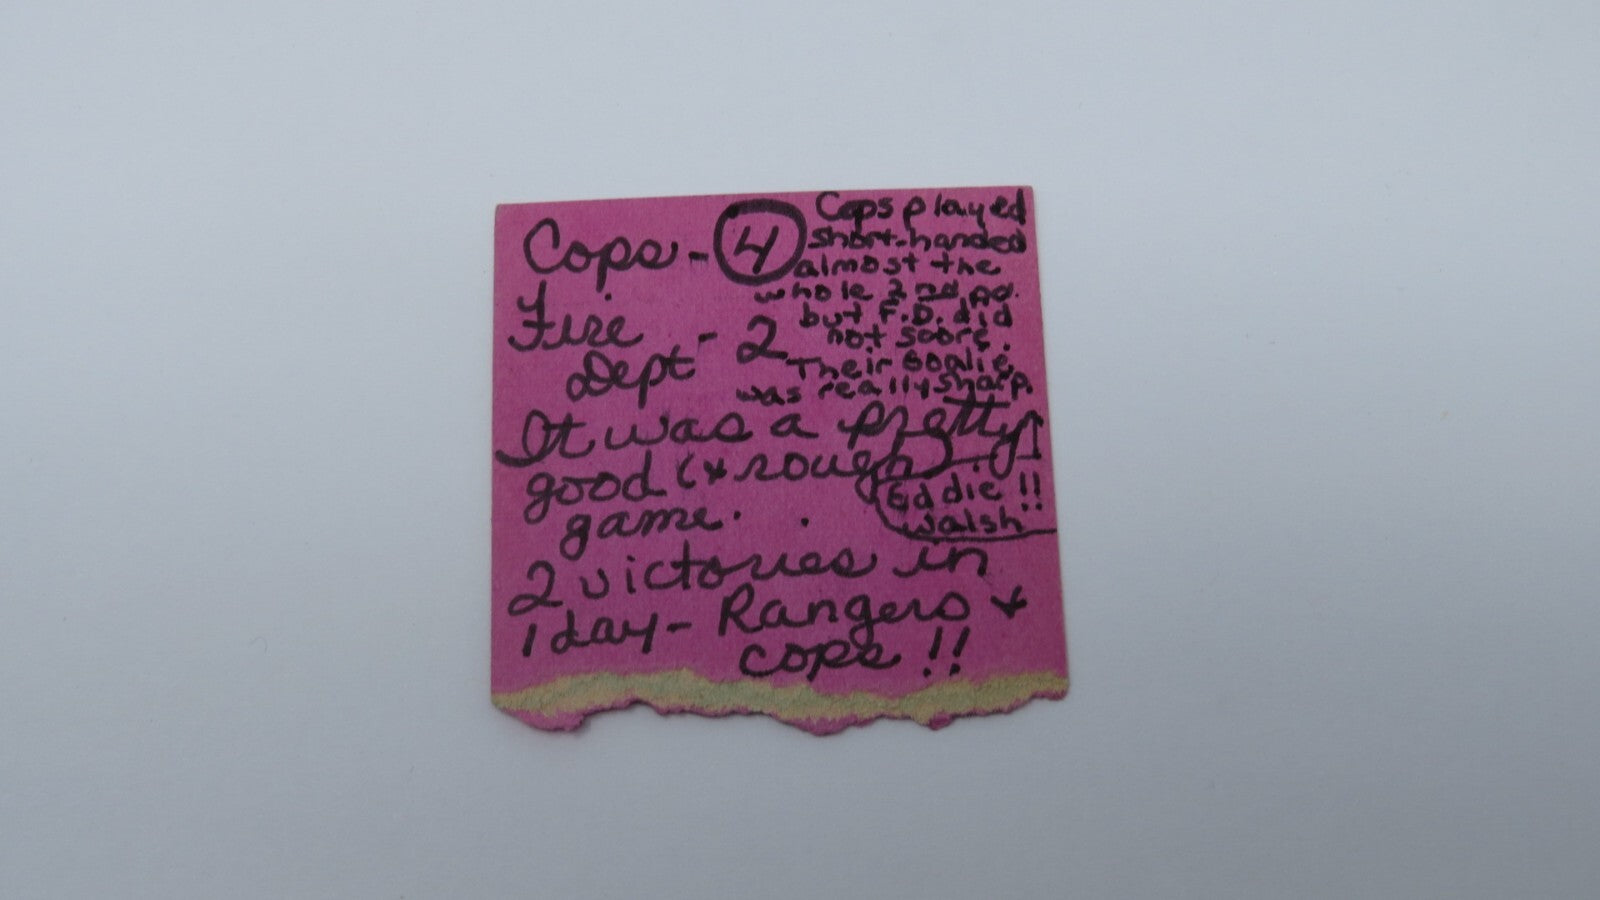 Cops - 4
Fire
Dept - 2
Cops played
short-handed
almost the
whole 2nd pd.
but F.D. did
not score.
Their Goalie
was really sharp.
It was a pretty
good (& rough)
game.
Eddie !!
Walsh
2 victories in
1 day - Rangers &
cops !!